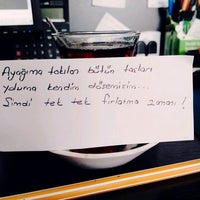 Ayağıma takılan bütün taşları
yoluma kendim döşemişim...
Şimdi tek tek fırlatma zamanı!